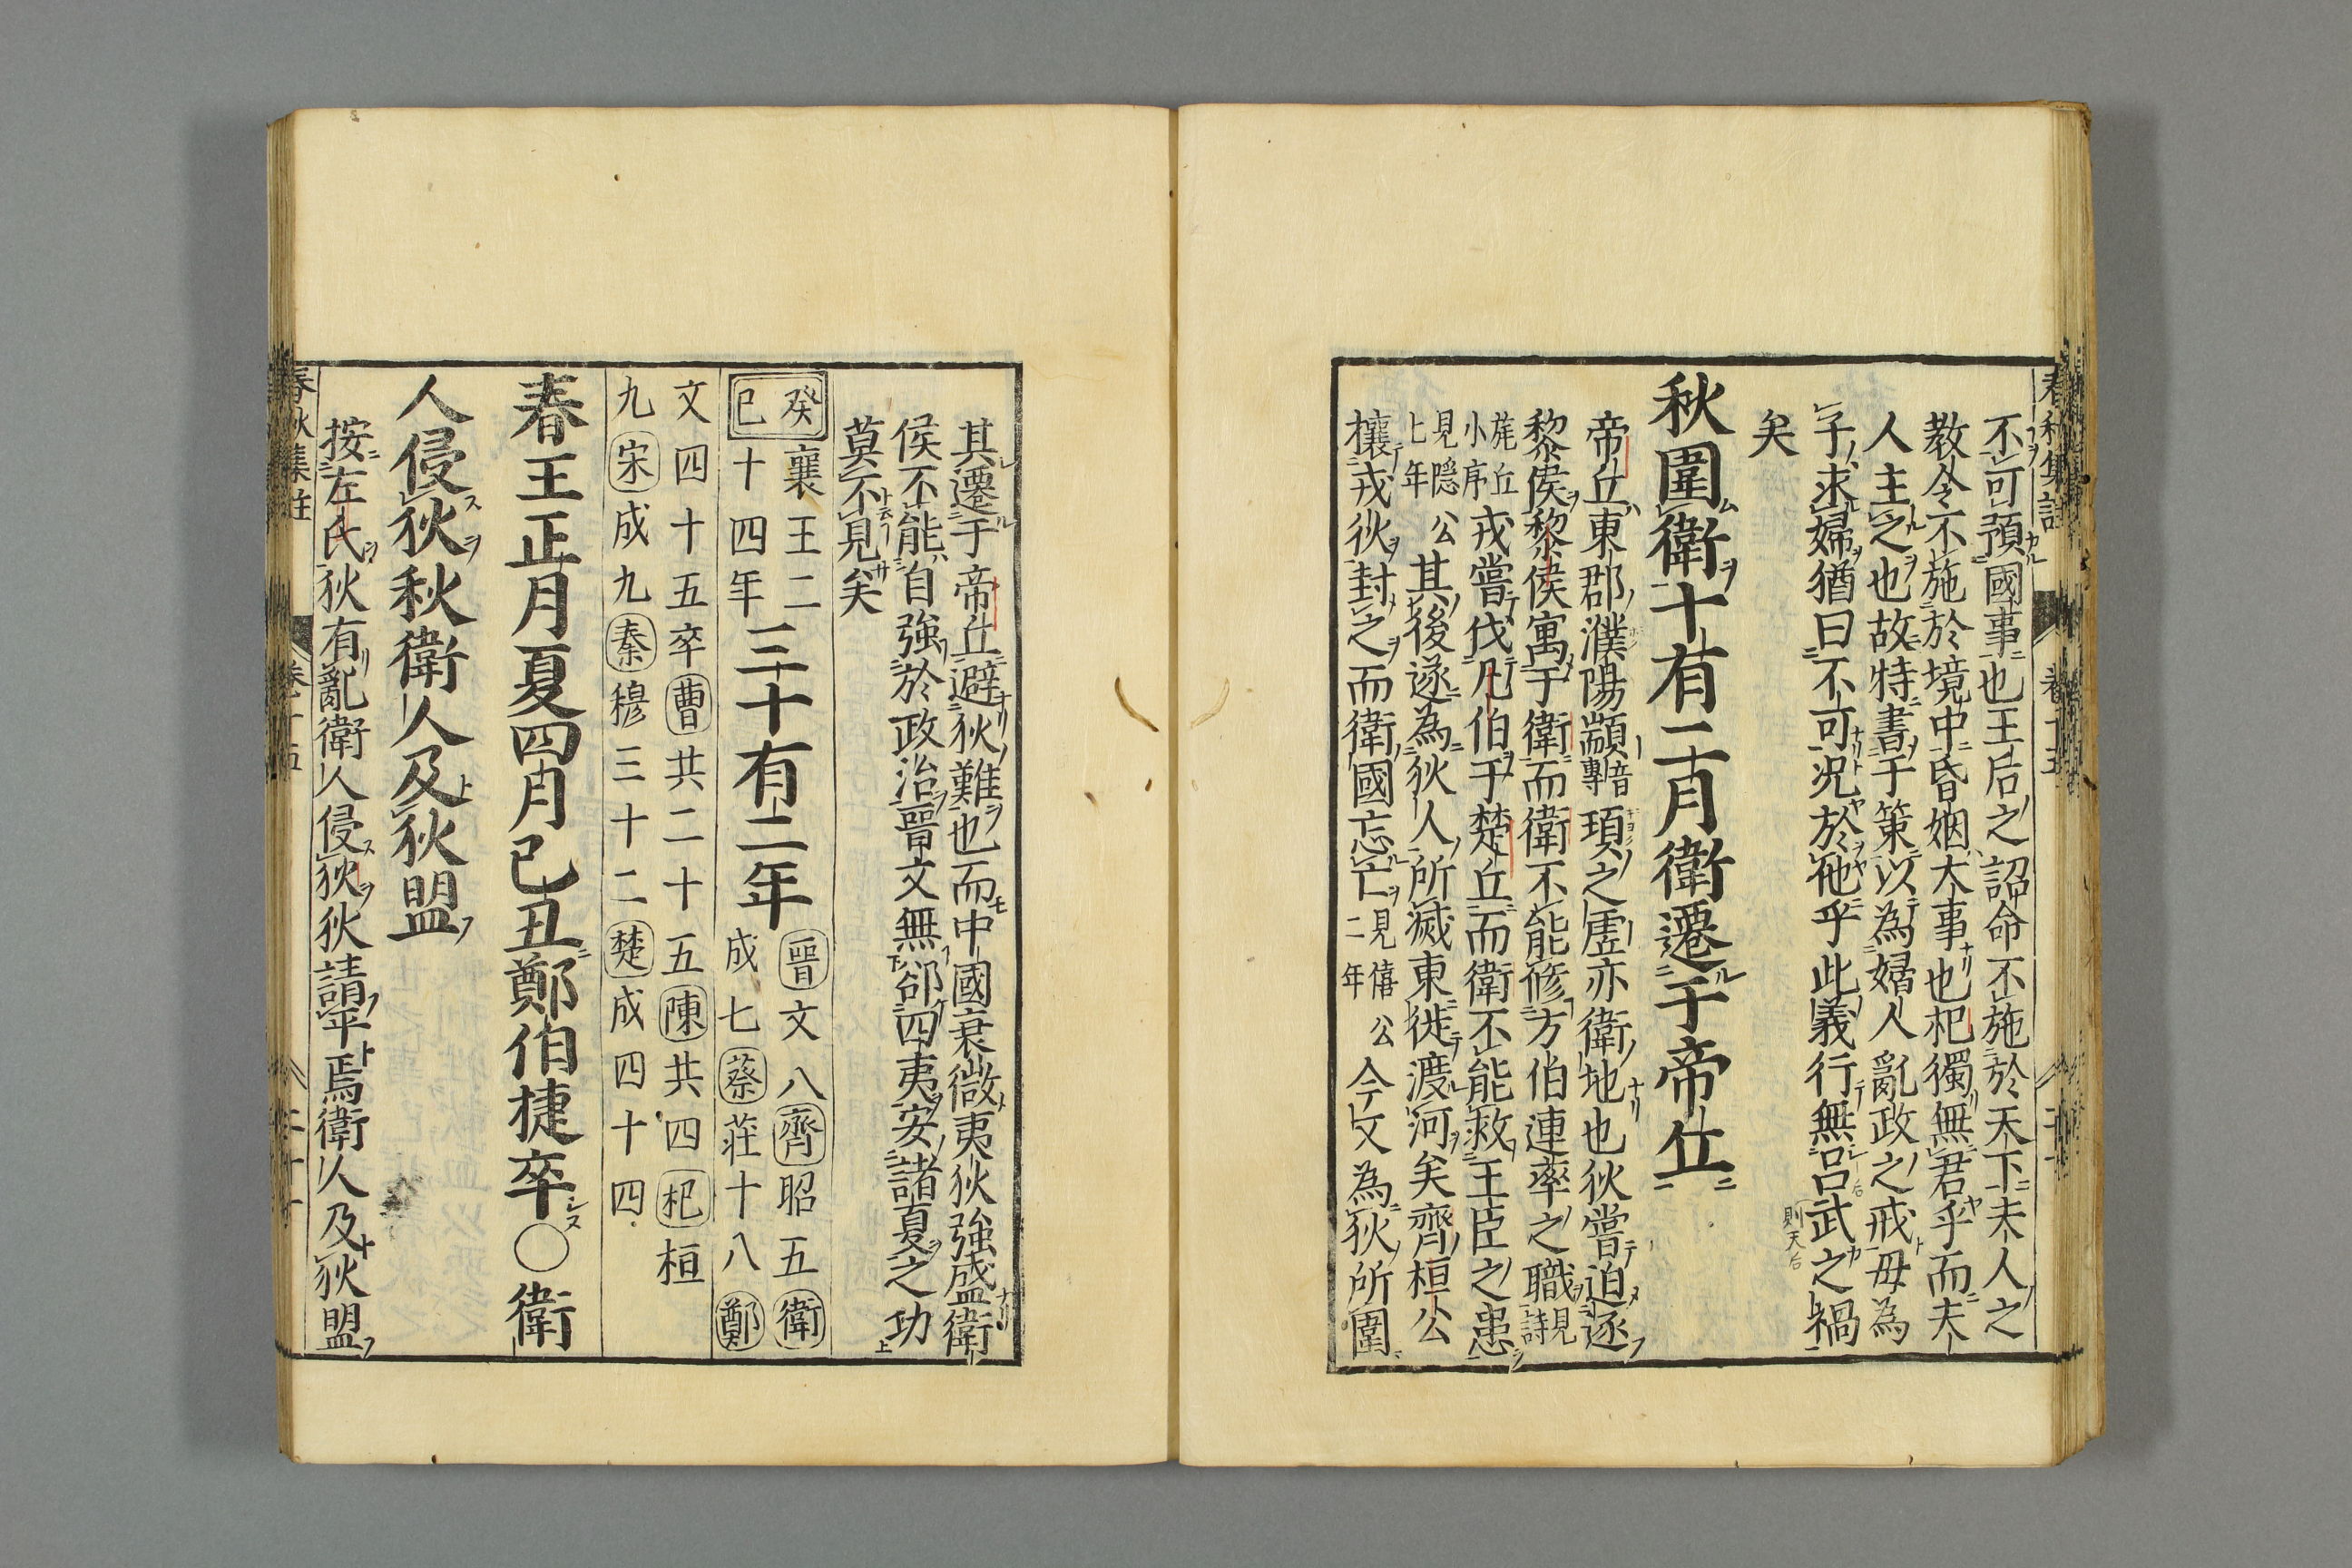 不可預國事也王后之詔命不施於天下夫人之
教令不施於境中昏姻大事也杞獨無君乎而夫
人主之也故特書于策以為婦人亂政之戒毋為
子求婦猶曰不可況於他乎此義行無呂武之禍
則天后
矣
秋圍衛十有二月衛遷于帝丘
帝丘東郡濮陽顓音專頊之虛亦衛地也狄嘗迫逐
黎侯黎侯寓于衛而衛不能修方伯連率之職見詩
旄丘小序戎嘗伐凡伯于楚丘而衛不能救王臣之患
見隱公七年其後遂為狄人所滅東徙渡河矣齊桓公
攘戎狄封之而衛國忘亡見僖公二年今又為狄所圍
其遷于帝丘避狄難也而中國衰微夷狄強盛衛
侯不能自強於政治晉文無郤四夷安諸夏之功
莫不見矣
癸巳襄王二十四年三十有二年晉文八齊昭五衛成七蔡莊十八鄭
文四十五卒曹共二十五陳共四杞桓
九宋成九秦穆三十二楚成四十四
春王正月夏四月己丑鄭伯捷卒○衛
人侵狄秋衛人及狄盟
按左氏狄有亂衛人侵狄狄請平焉衛人及狄盟
春秋集註